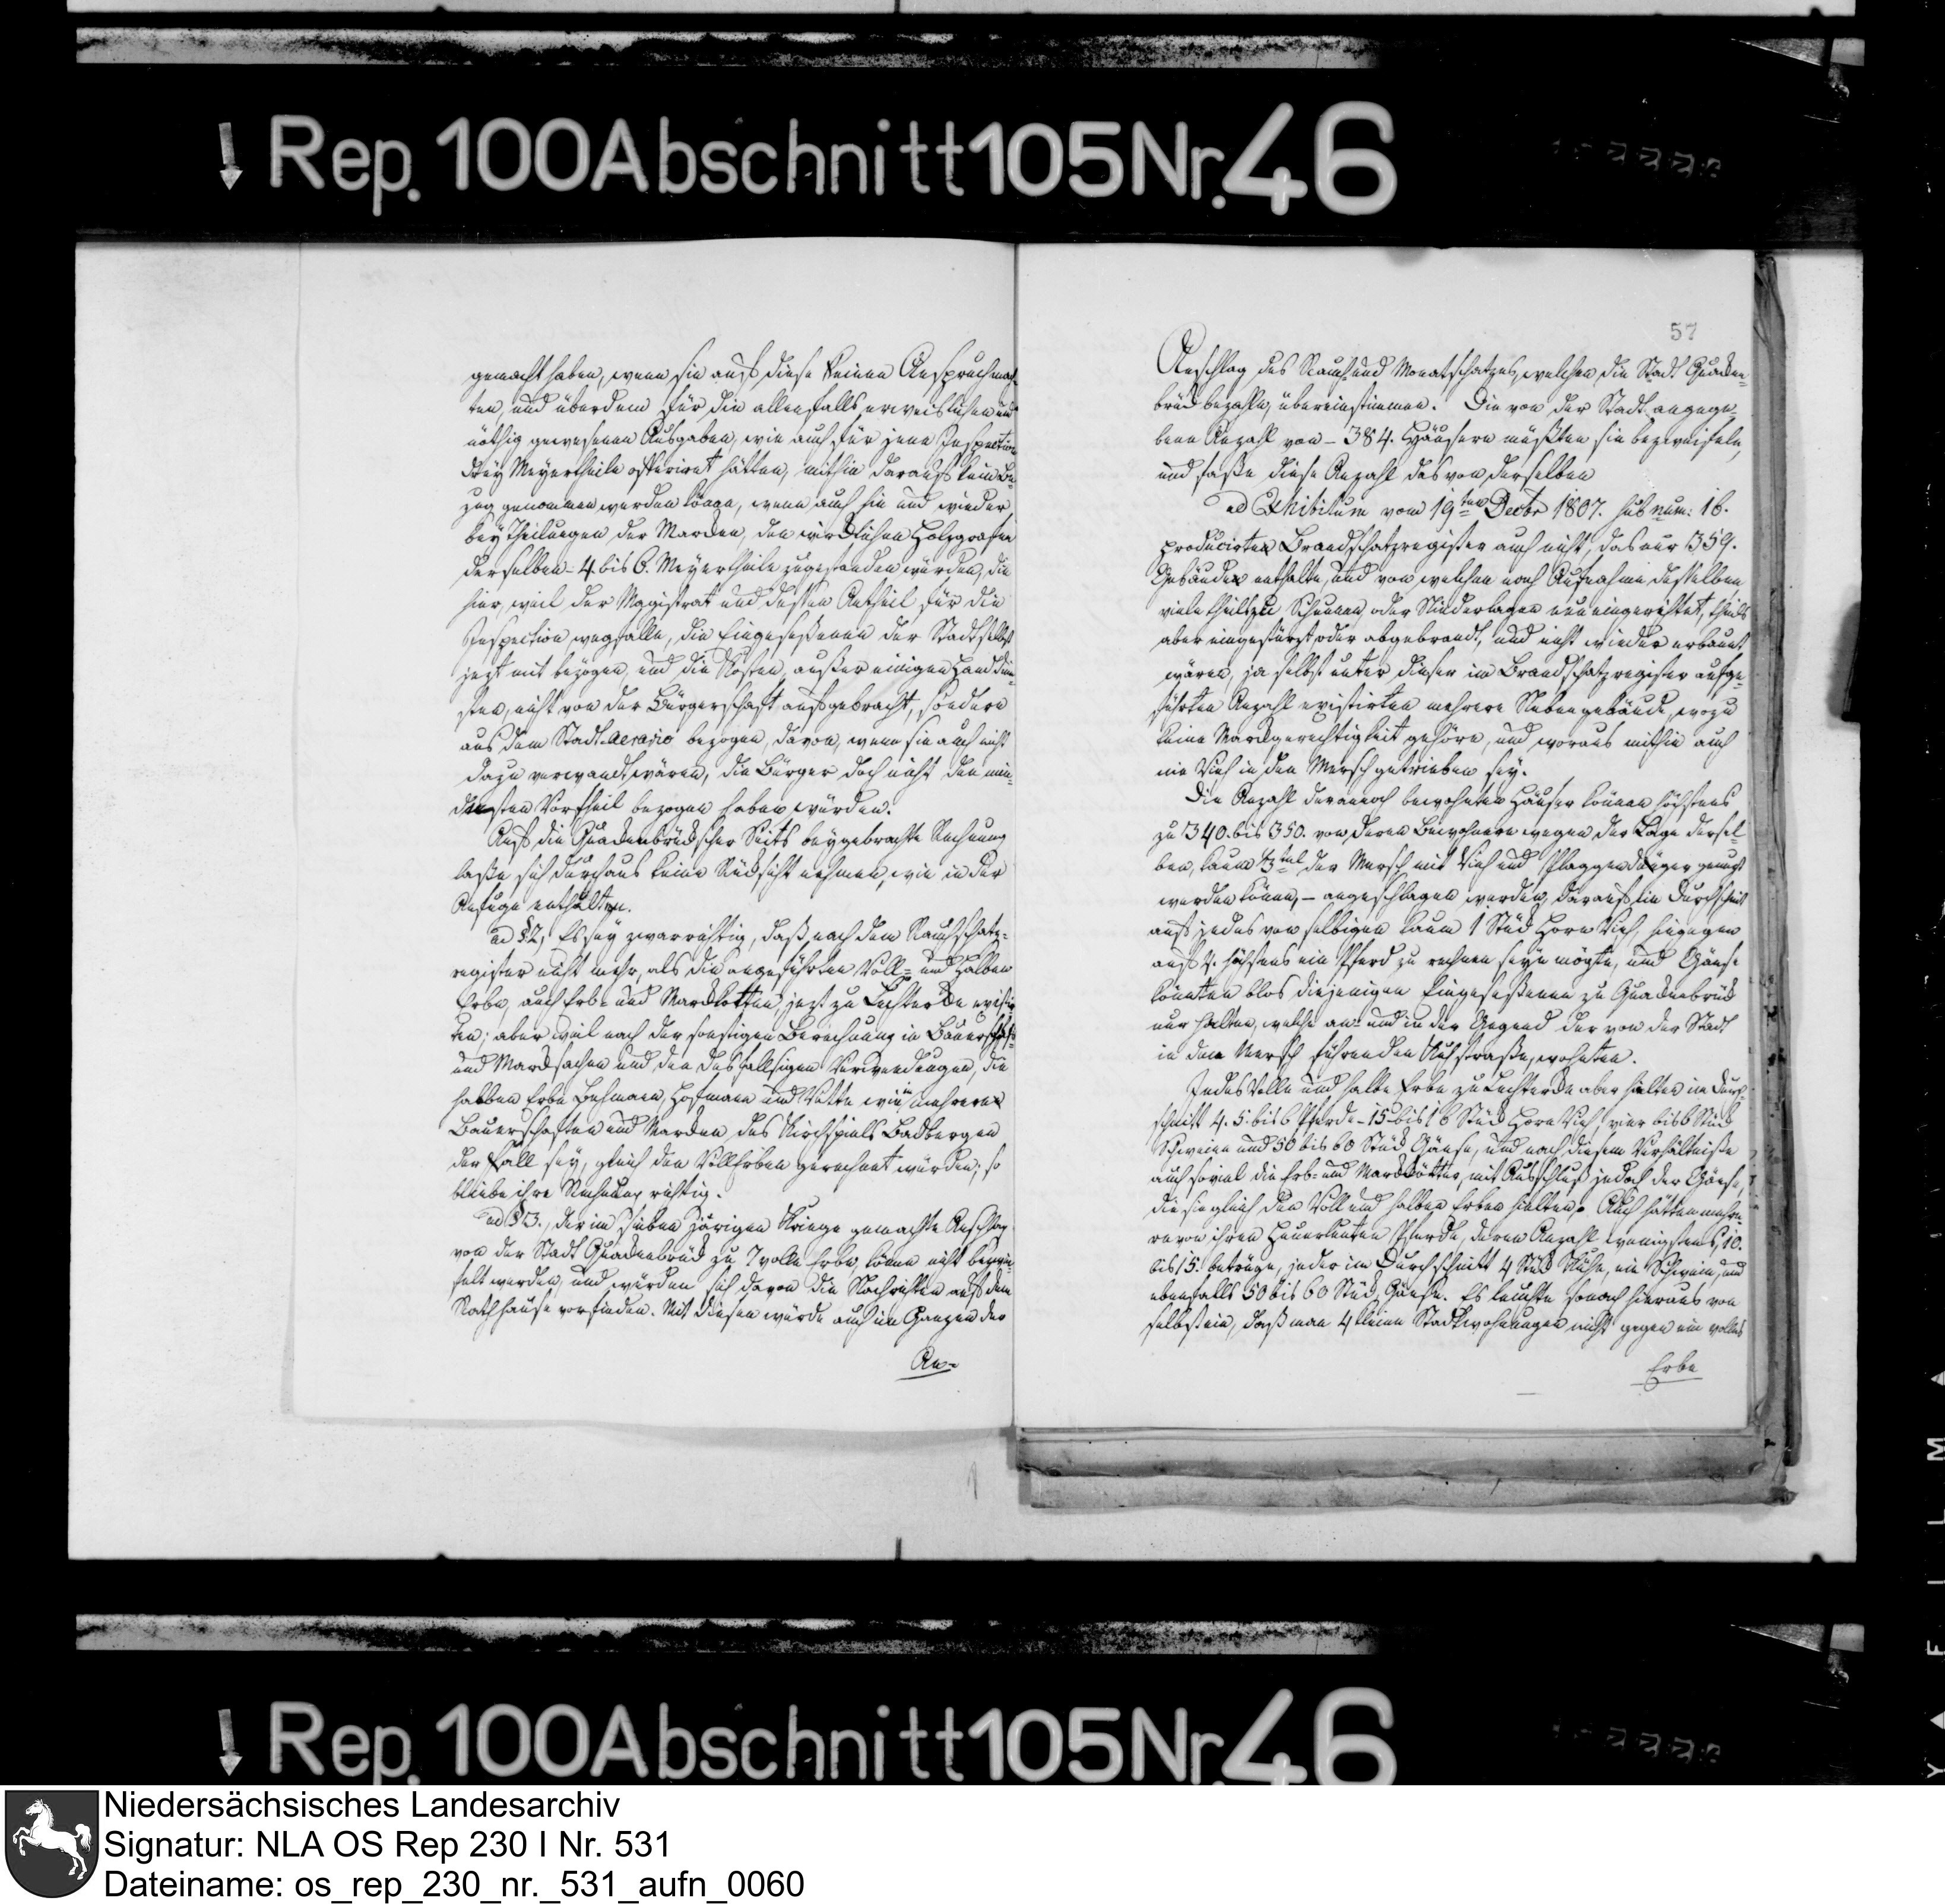 Rep. 100 Abschnitt 105 Nr. 46
gemacht haben, wenn sie auf diese keinen Anspruch mach-
ten, und überdem für die allenfalls erweislichen und
nöthig gewesenen Ausgaben, wie auch für jene Inspection
drey Meyertheile offerirt hätten, mithin daraus kein Be-
zug genommen werden könne, wenn auch hie und wieder
bey Theilungen der Marken, den wirklichen Holzgrafen
derselben - 4 bis 6. Meyertheile zugestanden würden, die
hier, weil der Magistrat und dessen Antheil für die
Inspection wegfalle, die Eingesessenen der Stadt selbst
jezt mit bezögen, und die Kosten, außer einigen Handdien-
sten, nicht von der Bürgerschaft aufgebracht, sondern
aus dem Stadt-Aerario bezogen, davon, wenn sie auch nicht
dazu verwandt wären, die Bürger doch nicht den min-
desten Vortheil bezogen haben würden.
Auf die Quakenbrückscher Seits beygebrachte Rechnung
laße sich durchaus keine Rücksicht nehmen, wie in der
Anfuge enthalten.
ad §2, Es sey zwar richtig, daß nach dem Rauchschatz-
register nicht mehr, als die angeführten Voll- und Halben
Erbe, auch Erb- und Markkotten, jezt zu Lechterke existir-
ten; aber weil nach der sonstigen Berechnung in Bauerschafts-
und Marksachen und den desfallsigen Verwendungen, die
halben Erbe Lehmann, Hofmann und Vette wie in mehreren
Bauerschaften und Marken des Kirchspiels Badbergen
der Fall sey, gleich den Vollerben gerechnet würden; so
bliebe ihre Rechnung richtig.
ad §3., der im sieben järigen Kriege gemachte Anschlag
von der Stadt Quakenbrück zu 7 volle Erbe, könne nicht bezwei-
felt werden, und würden sich davon die Nachrichten auf dem
Rathhause vorfinden. Mit diesen würde auch im Ganzen der
An-
57
Anschlag des Rauch- und Monatschatzes, welchen die Stadt Quaken-
brück bezahle, übereinstimmen. Die von der Stadt angege-
bene Anzahl von - 384. Häusern müßten sie bezweifeln,
und faße diese Anzahl das von derselben
ad Exhibitum vom 19ten Decbr 1807. sub num: 16.
producirten Brandschatzregister auch nicht, das nur 359.
Gebäuden enthalte, und von welchen nach Aufnahme desselben
viele theils zu Scheunen oder Niederlagen neu eingerichtet, theils
aber eingestürzt oder abgebrandt, und nicht wieder erbauet
wären, ja selbst unter dieser im Brandschatzregister aufge-
führten Anzahl existirten mehrere Nebengebäude, wozu
keine Markgerechtigkeit gehöre, und woraus mithin auch
nie Vieh in den Mersch getrieben sey.
Die Anzahl der annoch bewohnten Häuser können höchstens
zu 340. bis 350. von deren Bewohnern wegen der Lage dersel-
ben, kaum tel der Mersch mit Vieh und Plaggendünger genuzt
werden könne, - angeschlagen werden, daraus im Durchschnit
auf jedes von selbigen kaum 1 Stück Horn Vieh, hingegen
auf höchstens ein Pferd zu rechnen seyn mögte, und Gänse
könnten blos diejenigen Eingesessenen zu Quakenbrück
nur halten, welche an- und in der Gegend der von der Stadt
in den Mersch führenden Kuhstraße, wohnten.
Jedes Volle und halbe Erbe zu Lechterke aber halten im Durch-
schnitt 4. 5. bis 6 Pferde - 15 bis 16 Stück Horn Vieh, vier bis 6 Stück
Schweine und 50 bis 60 Stück Gänse, und nach diesem Verhältniße
auch soviel die Erb- und Markkötter, mit Ausschluß jedoch der Gänse,
die sie gleich den Voll und halben Erben hielten. Auch hätten mehre-
re von ihren Heuerleuten Pferde, deren Anzahl wenigstens, 10.
bis 15. betrüge, jeder im Durchschnitt 4 Stück Kühe, ein Schwein, und
ebenfalls 50 bis 60 Stück Gänse. Es leuchte sonach hieraus von
selbst ein, daß man 4 kleine Stadtwohnungen nicht gegen ein volles
Erbe
Rep. 100 Abschnitt 105 Nr. 46
Niedersächsisches Landesarchiv
Signatur: NLA OS Rep 230 I Nr. 531
Dateiname: os_rep_230_nr._531_aufn_0060